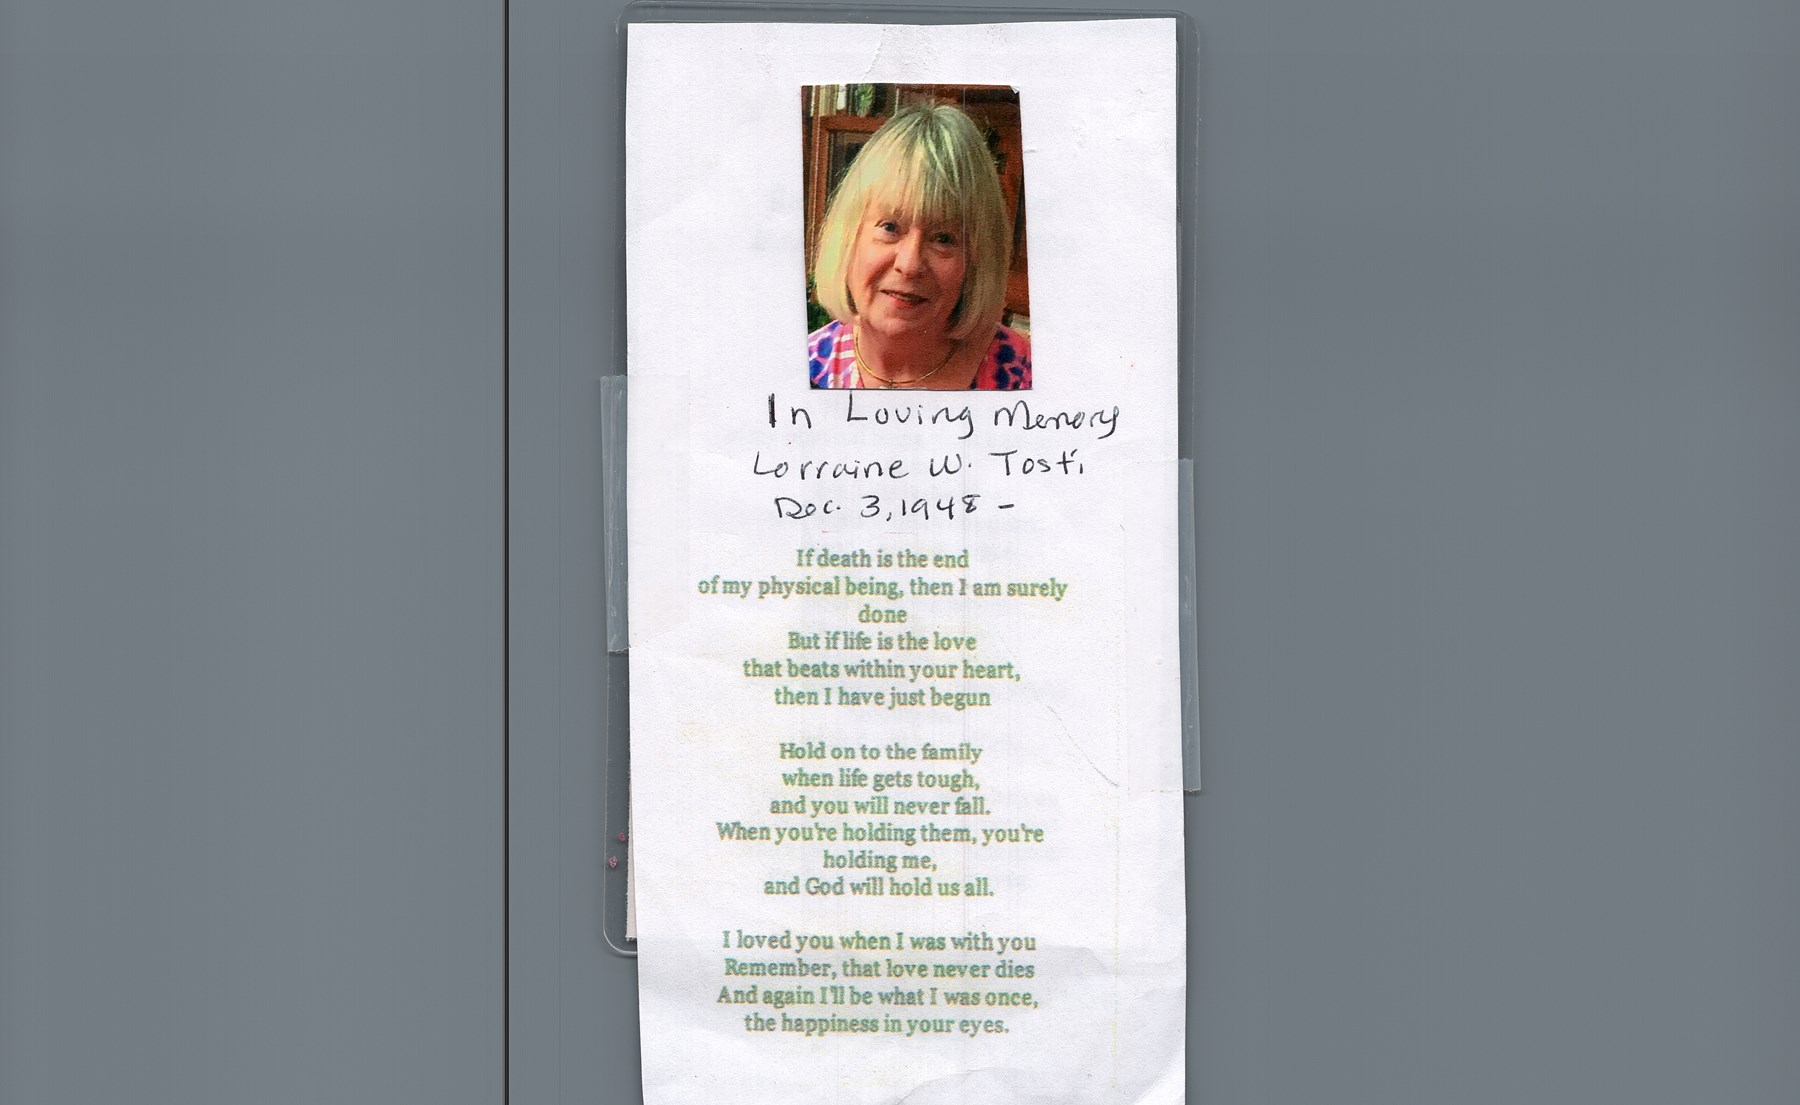 In Loving Memory
Lorraine W. Tosti
Dec. 3, 1948 -
If death is the end
of my physical being, then I am surely
done
But if life is the love
that beats within your heart,
then I have just begun
Hold on to the family
when life gets tough,
and you will never fall.
When you're holding them, you're
holding me,
and God will hold us all.
I loved you when I was with you
Remember, that love never dies
And again I'll be what I was once,
the happiness in your eyes.